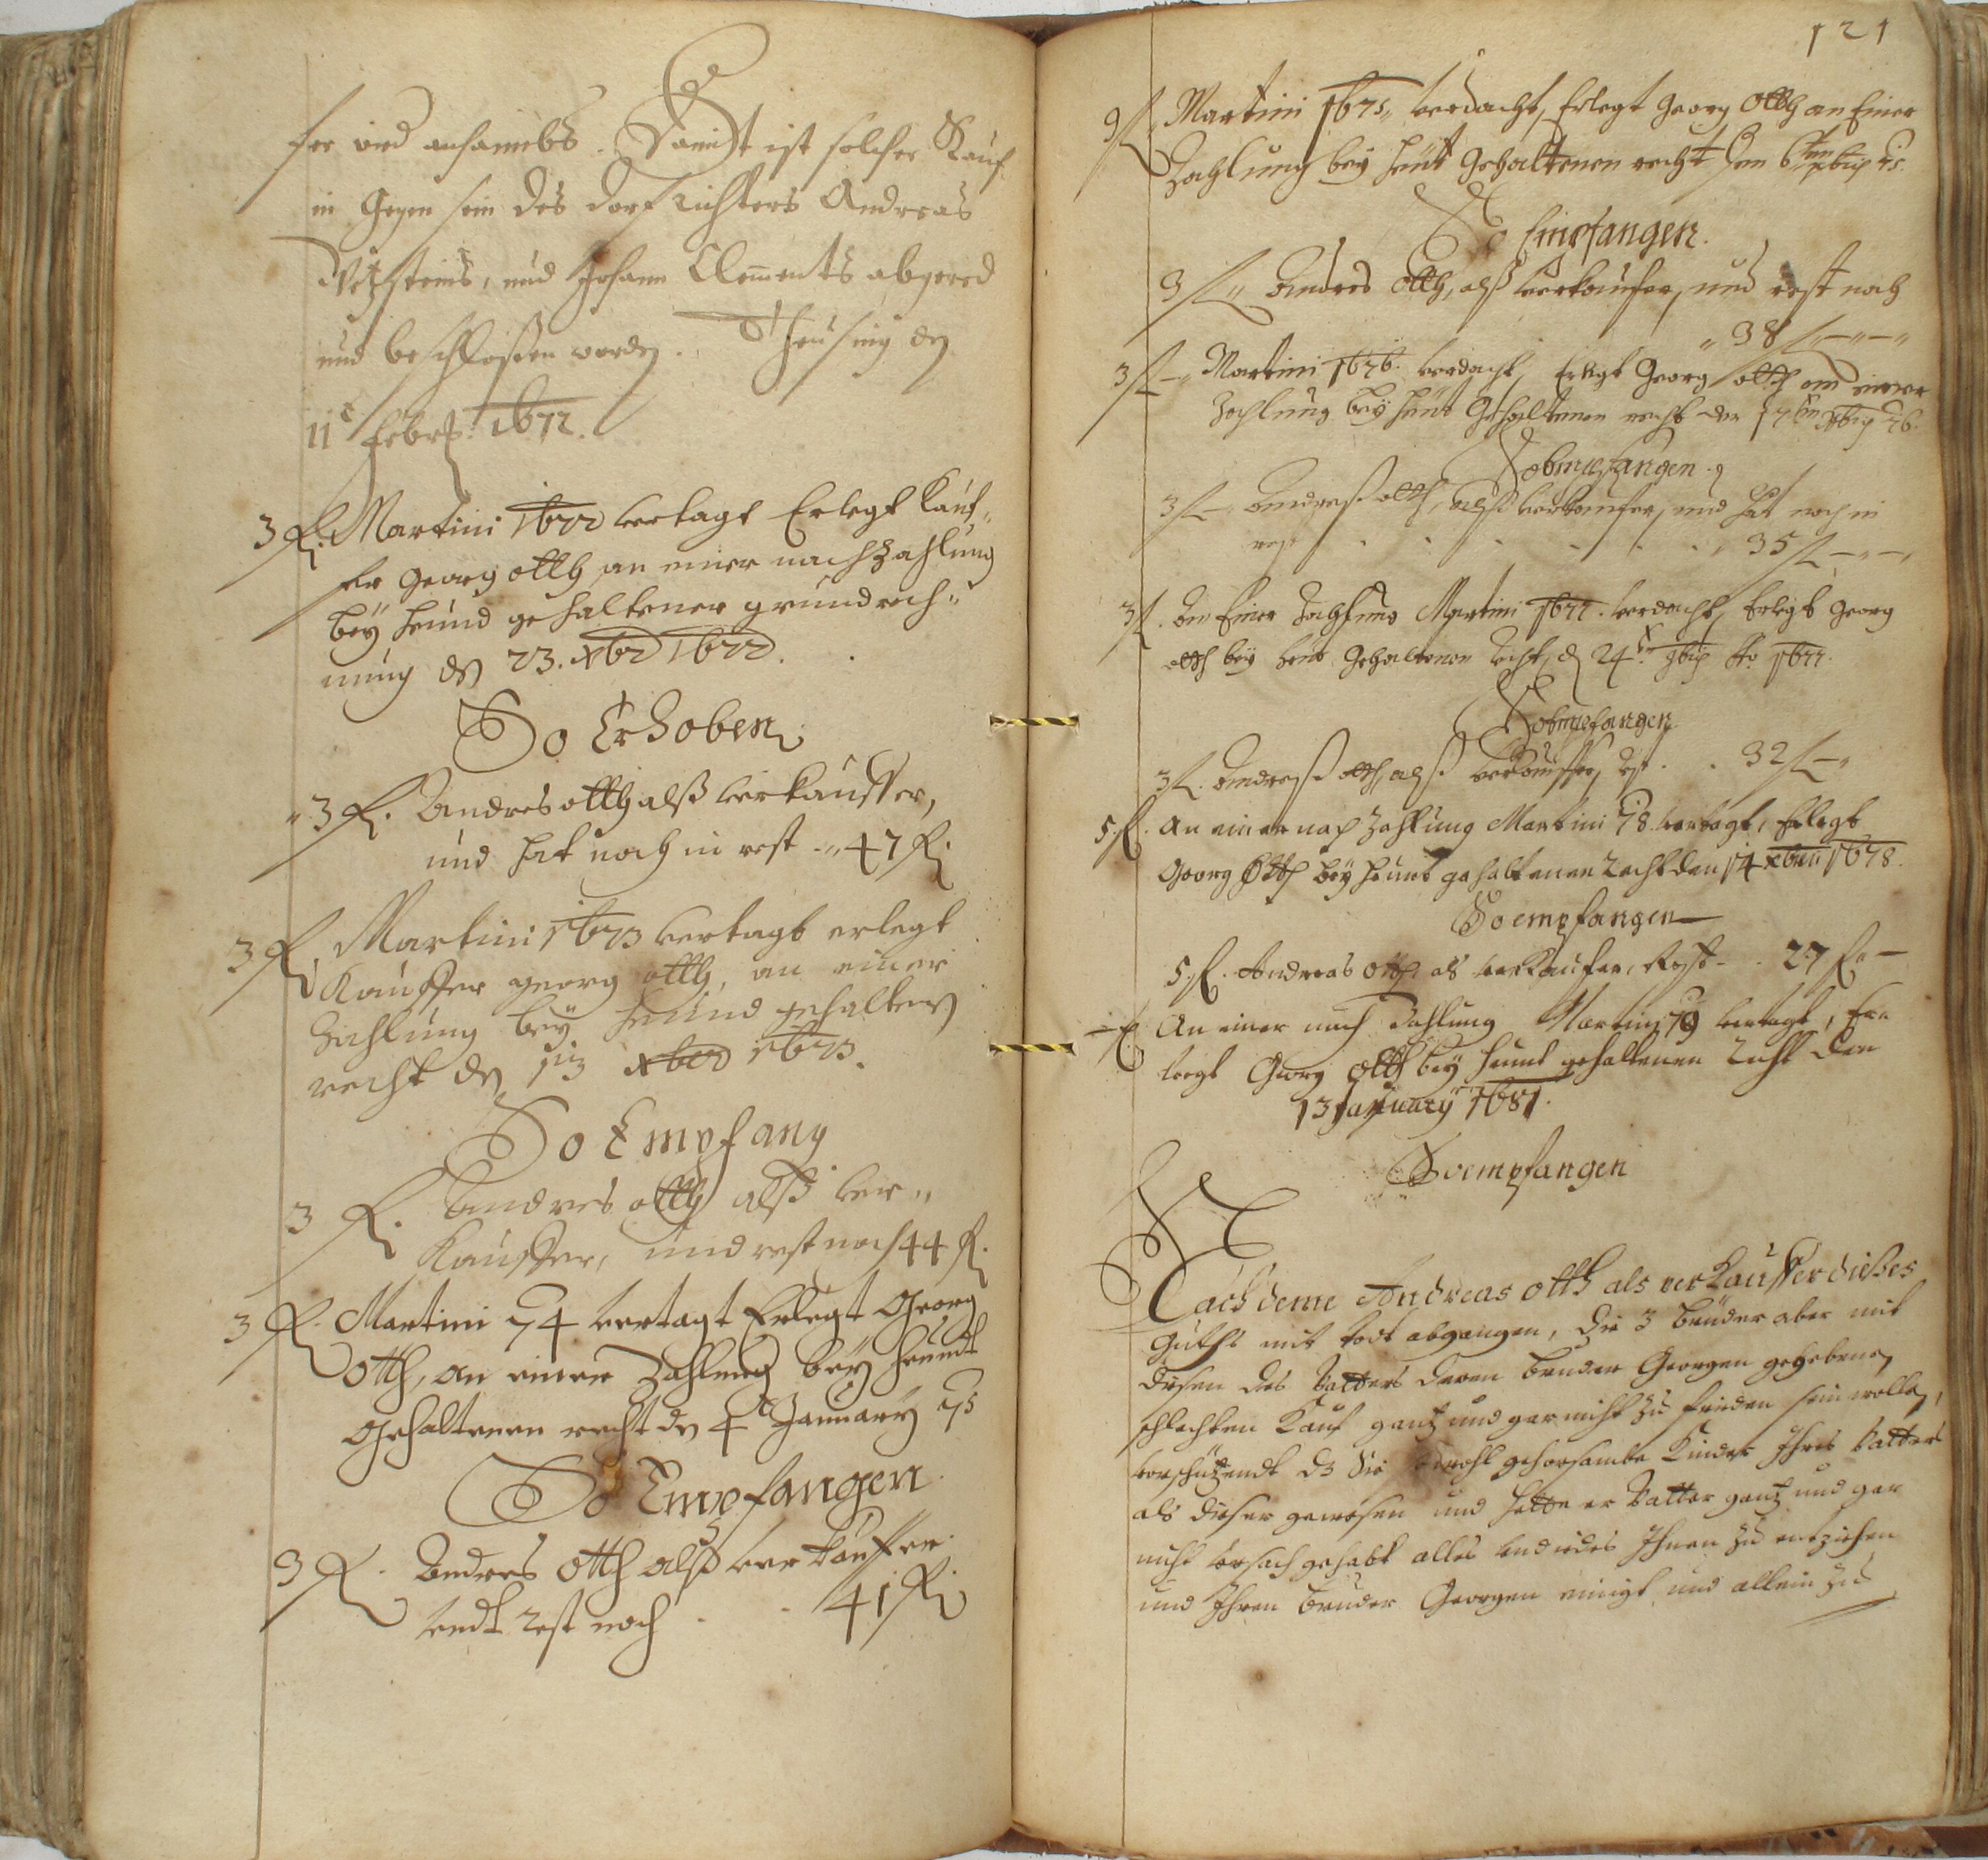 fer und ansambs. Damit ist solcher Kauf
in gegen sein des dorf Richters Andreas
und Johann Clements abgered
und beschlossen worden. Theusing den
11t Febr: 1672.
3 fl. Martini 1672 vertagt Erlegt Kauf„
fer Georg Otth an einer nachzahlung
bey heund gehaltener grundrech„
nung den 23. xbr 1672.
So Erhoben
„3 fl. Andres otth alß verkauffer,
und hat noch in rest „ 47 fl.
3 fl. Martini 1673 vertagt erlegt
Kauffer georg otth, an einer
Zahlung bey heund gehalten
recht den 13 xber 1673.
So Empfang
3 fl. Andres otth alß ver„
Kauffer, und rest noch 44 fl.
3 fl. Martini 74 vertagt Erlegt Georg
Otth, an einer Zahlung bey heundt
Gehaltenen recht den 4t January 75
So Empfangen
3 fl. Andres Otth alß verkauffer
rest noch - - 41 fl.
121
3 fl„ Martini 1675„ verdacht, Erlegt Georg Otth an Einer
Zahlung bey heut Gehaltenen recht den 6ten xbris 75.
So Empfangen.
3 fl„ Andres Otth, alß verkaufer, und rest noch
„ 38 fl„—„—„
3 fl—„ Martini 1676. verdacht, Erlegt Georg Otth an einer
Zahlung bey heut Gehaltenen recht den 17ten xbris 76.
So Empfangen
3 fl—„ Andreß otth, alß verkaufer, und hat noch in
rest . . . . . . 35 fl—„—„
3 fl. An Einer Zahlung Martini 1677. verdacht, Erlegt Georg
otth bey heut Gehaltenen recht, d 24t 9bris Ao 1677.
So Empfangen
3 fl. Andreß otth, alß verkauffer, rest . . 32 fl—„
5. fl. An einer nach Zahlung Martini 78 vertagt, Erlegt
Georg Otth bey heunt gehaltenen recht den 14 xbris 1678.
So empfangen
5. fl. Andreas Otth als verkaufer, Rest - . 27 fl„ —
— fl An einer nach Zahlung Martini 79 vertagt, Er„
legt Georg Otth bey heunt gehaltenen recht den
13 January 1681.
So empfangen
Nach deme Andreas otth als verkauffer dießes
Guths mit todt abgangen, die 3 brüder aber mit
diesen des Vatters deren bruder Georgen gegebenen
schlechten Kauf gantz und gar nicht zu frieden sein wollen,
vorschützendt dz sie sowohl gehorsambe Kinder Ihres Vatters
als dieser gewesen und hette er Vatter gantz und gar
nicht Ursach gehabt alles und iedes Ihnen zu entziehen
und Ihren bruder Georgen einigt und allein zu